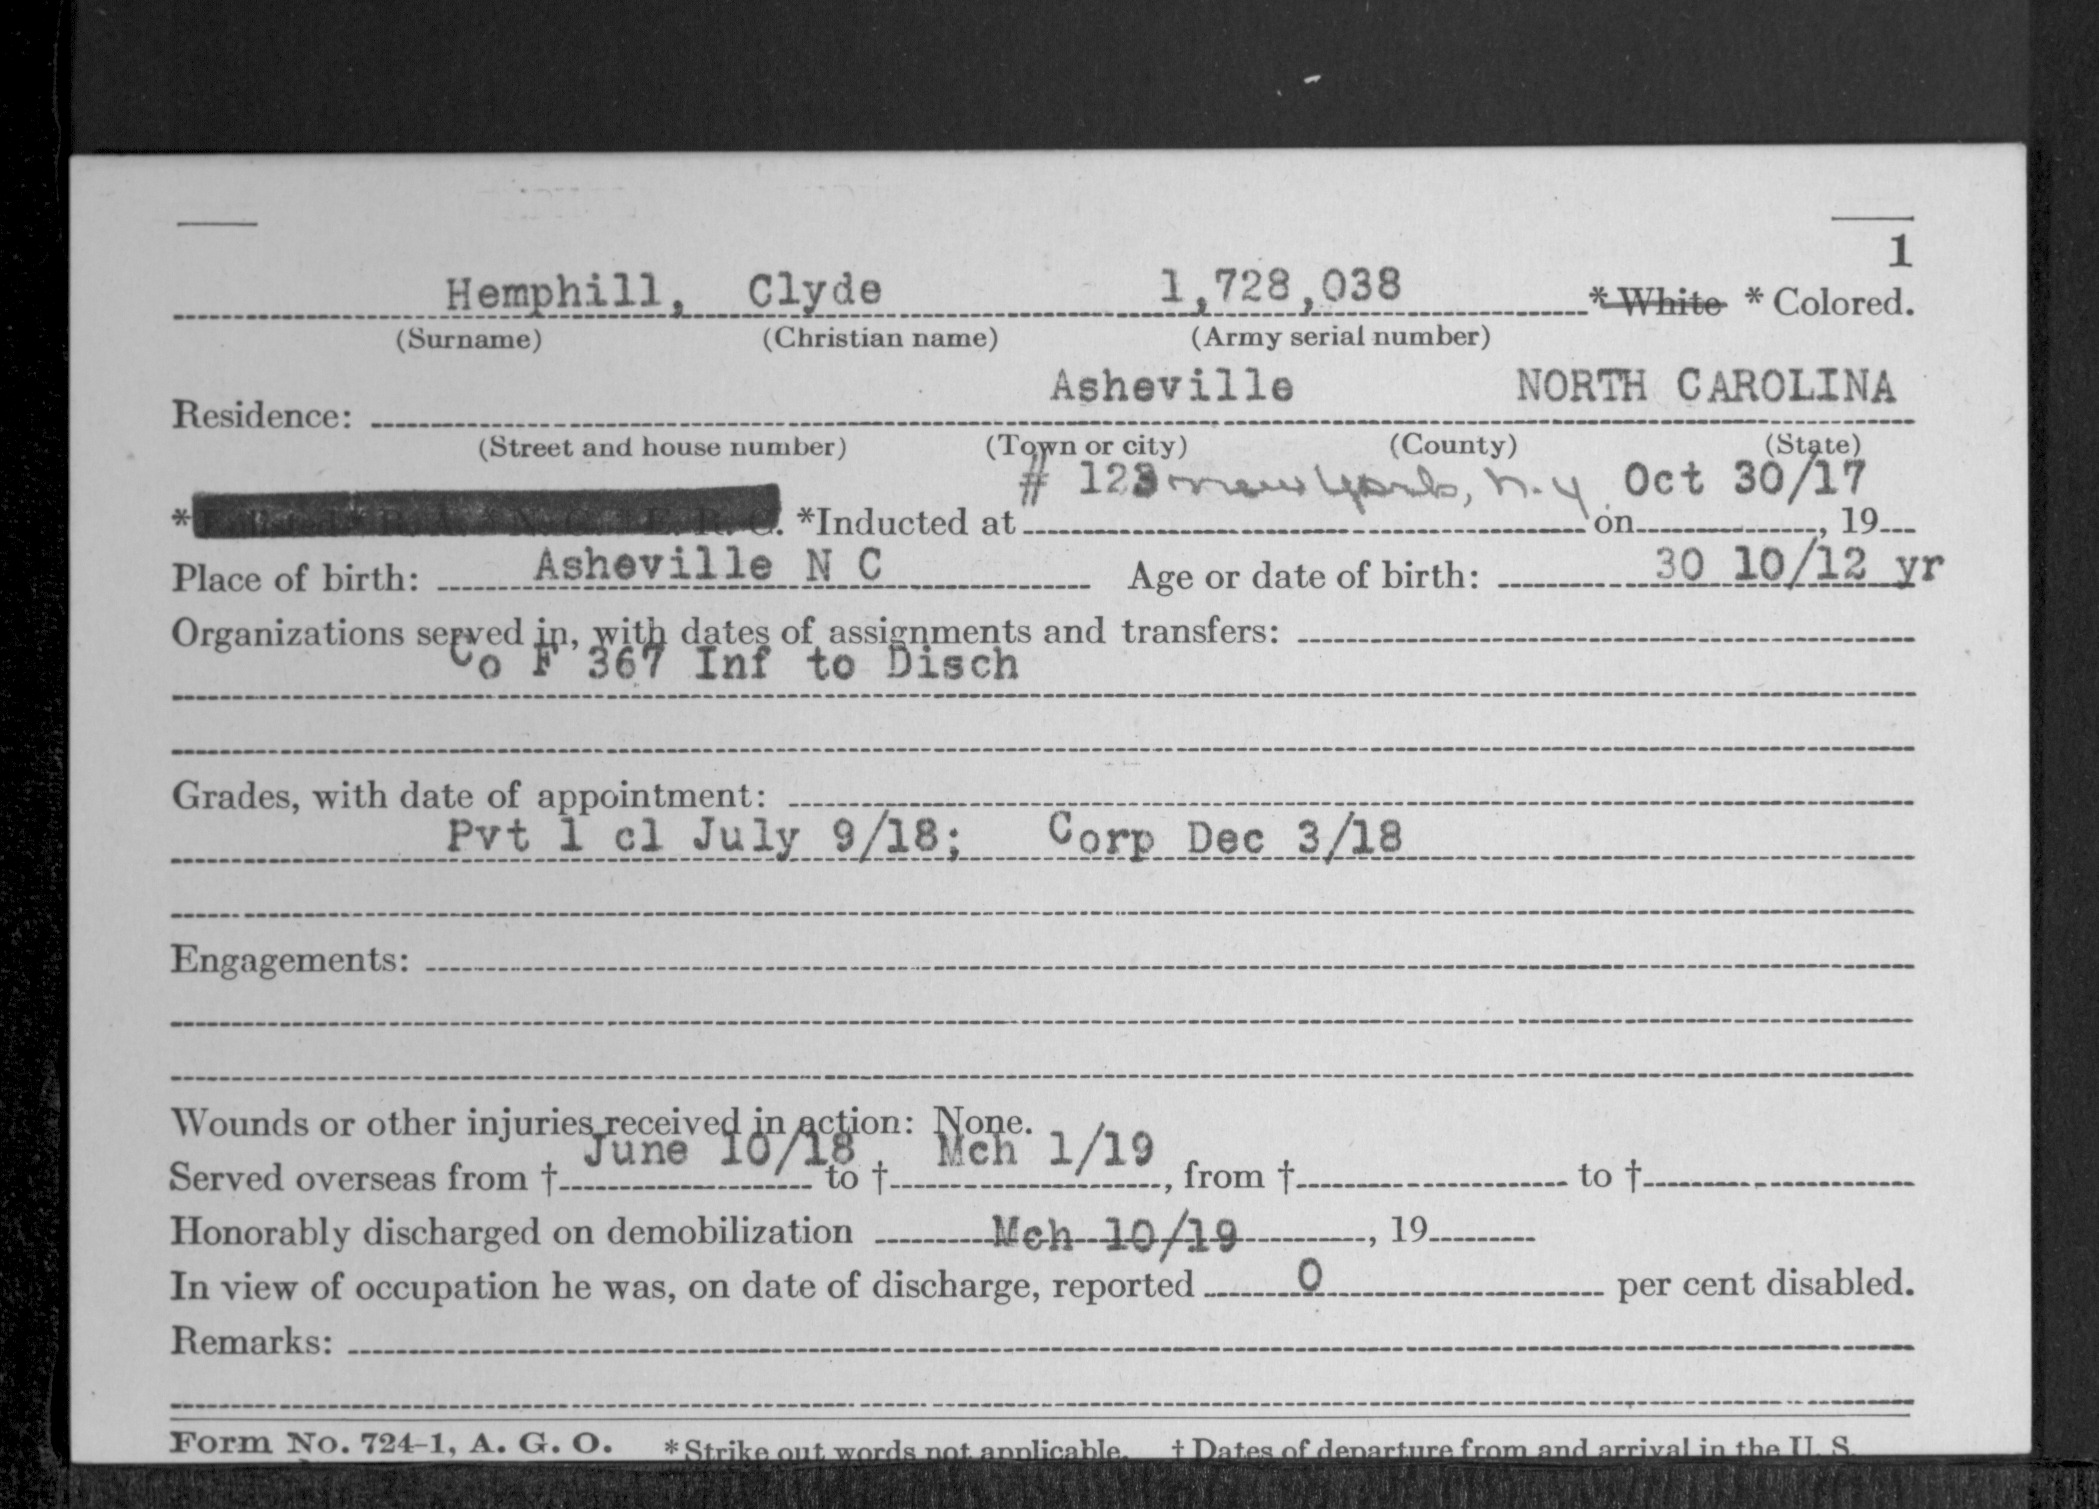 1
Hemphill, Clyde 1,728,038 * White * Colored.
(Surname) (Christian name) (Army serial number)
Asheville NORTH CAROLINA
Residence:
(Street and house number) (Town or city) (County) (State)
# 123 New York, N.Y. Oct 30/17
* Enlisted * R. A. * N. G. * E. R. C. *Inducted at on , 19
Place of birth: Asheville N C Age or date of birth: 30 10/12 yr
Organizations served in, with dates of assignments and transfers:
Co F 367 Inf to Disch
Grades, with date of appointment:
Pvt 1 cl July 9/18; Corp Dec 3/18
Engagements:
Wounds or other injuries received in action: None.
June 10/18 Mch 1/19
Served overseas from † to † , from † to †
Honorably discharged on demobilization Mch 10/19 , 19
In view of occupation he was, on date of discharge, reported 0 per cent disabled.
Remarks:
Form No. 724-1, A. G. O. *Strike out words not applicable. † Dates of departure from and arrival in the U. S.